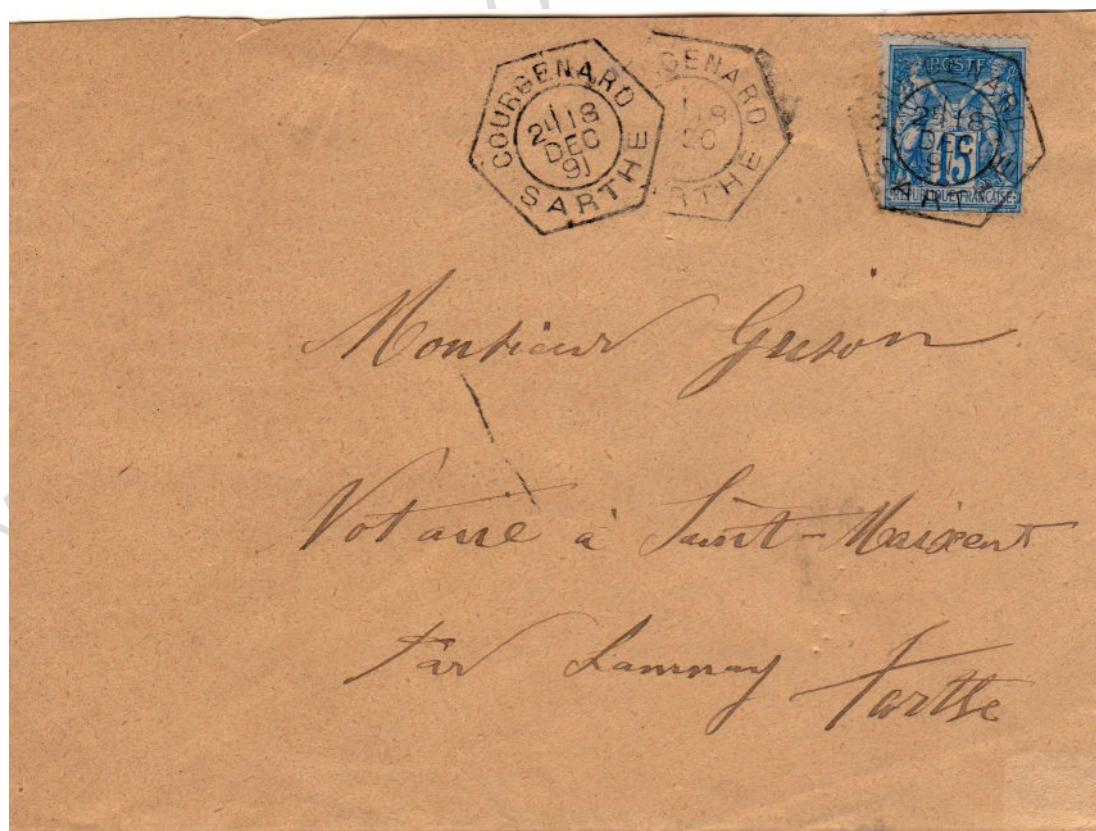 COURGENARD
2E 18
DEC
91
SARTHE
GENARD
18
RTHE
POSTE
GENARD
2E 18
DEC
91
15
SAR
REPUBLIQUE FRANCAISE
Monsieur Guson
Notaire à Saint-Maixent
Par Lamnay Sarthe